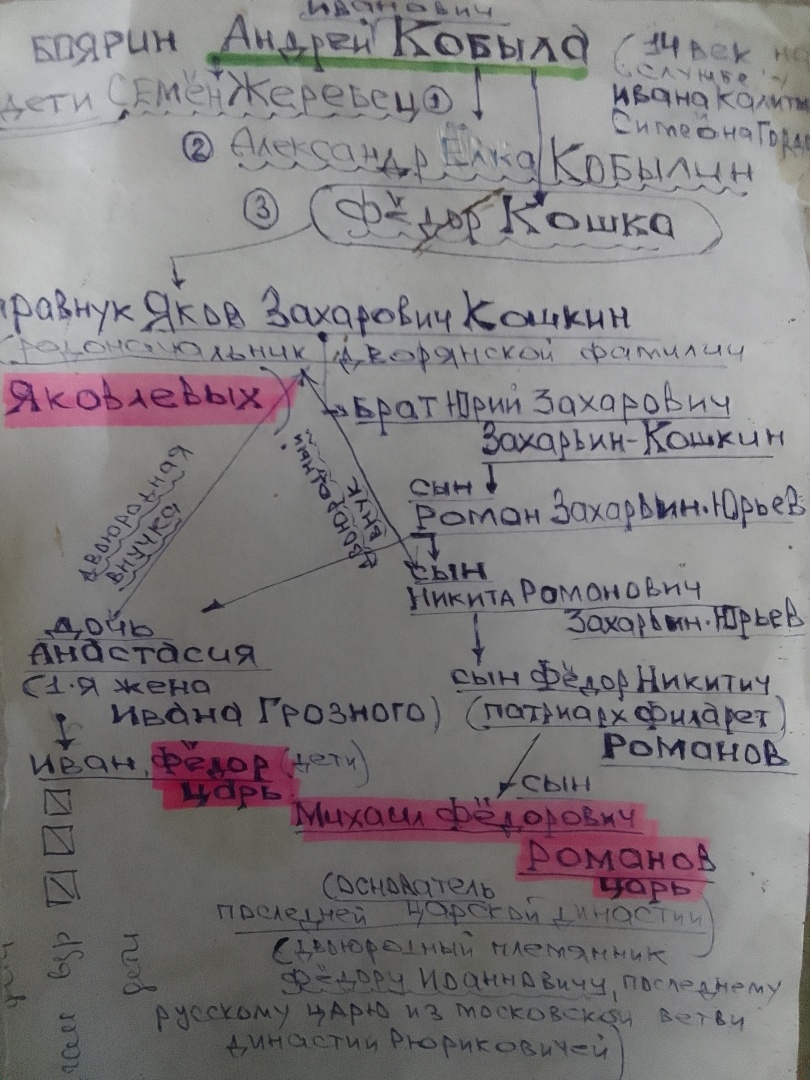 Иванович
БОЯРИН Андрей Кобыла
(14 век на
службе у
Ивана Калиты
Симеона Гордо
дети СЕМЁН Жеребец ①
② Александр Ёлка КОБЫЛИН
③ Фёдор Кошка
правнук Яков Захарович Кошкин
(родоначальник дворянской фамилии
Яковлевых)
Брат Юрий Захарович
Захарьин-Кошкин
двоюродная
внучка
двоюродный
внук
сын
Роман Захарьин-Юрьев
сын
Никита Романович
Захарьин-Юрьев
дочь
Анастасия
(1-я жена
Ивана Грозного)
сын Фёдор Никитич
(патриарх Филарет)
Романов
Иван, Фёдор (дети)
царь
сын
Михаил Фёдорович
Романов
царь
(основатель
последней царской династии)
(двоюродный племянник
Фёдору Иоанновичу, последнему
русскому царю из московской ветви
династии Рюриковичей)
взр
дети